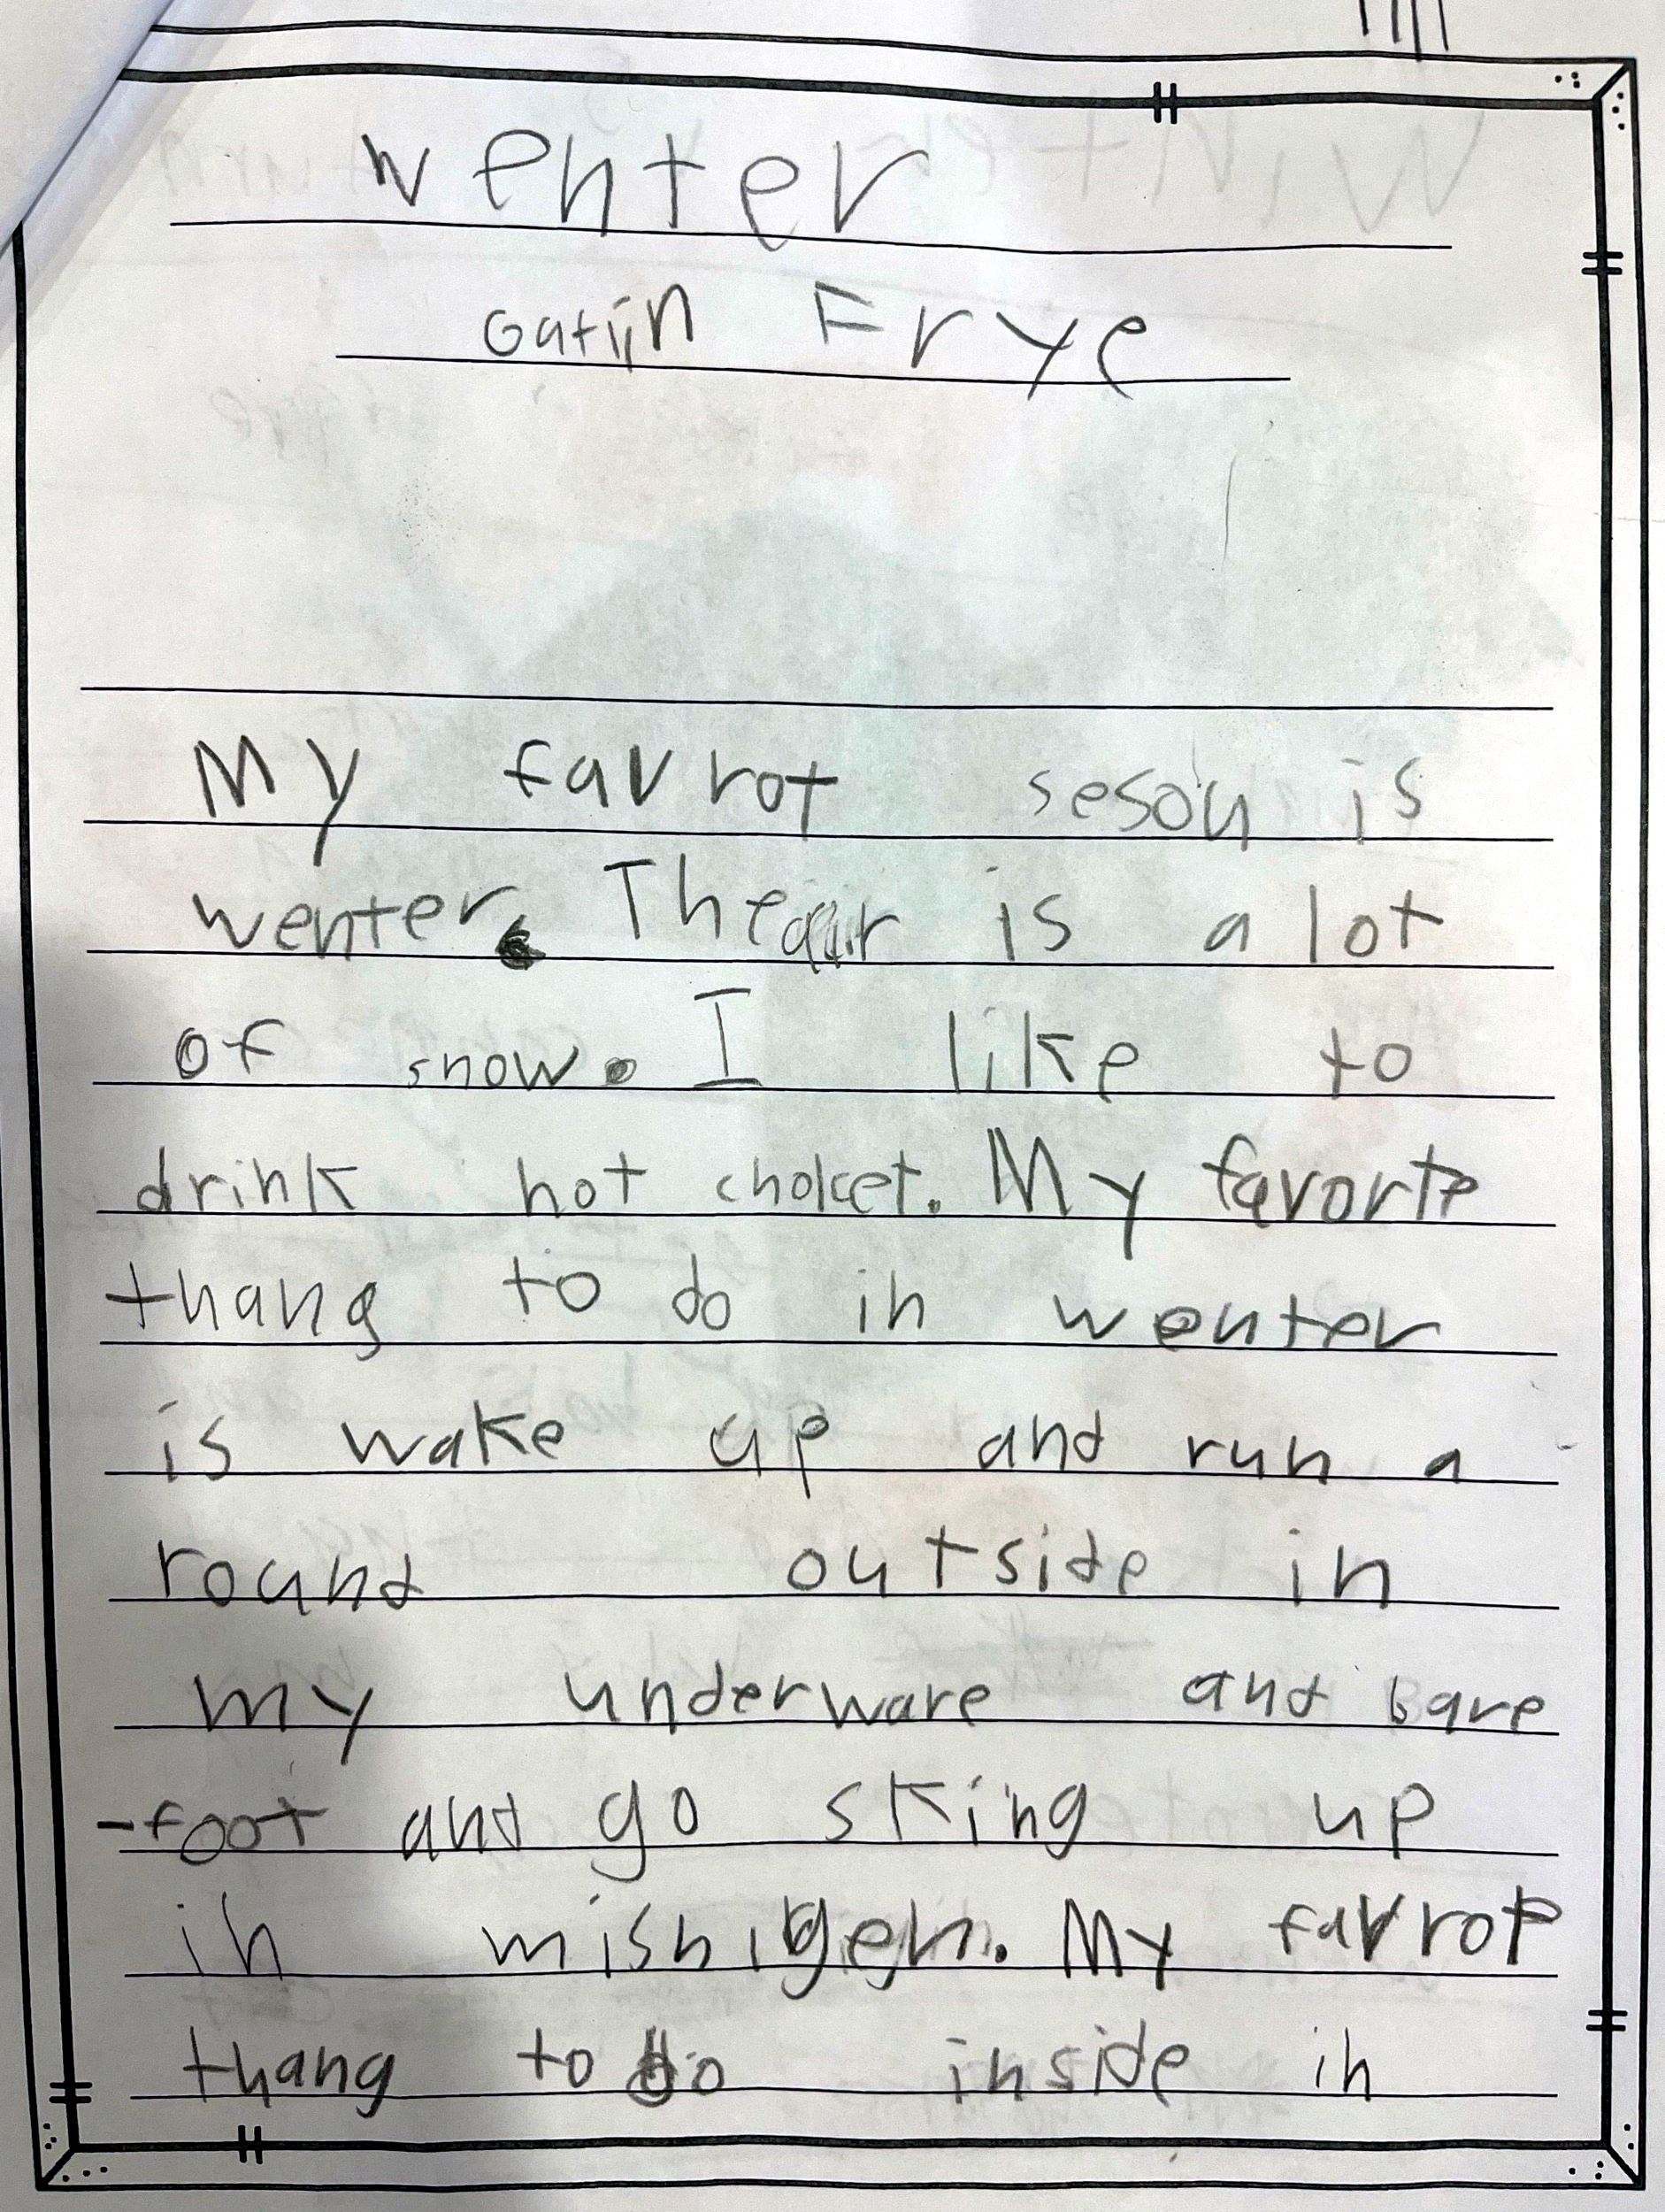 wenter
Gatiin Frye
My favrot seson is
wenter. Thear is a lot
of snow. I like to
drink hot choket. My favorte
thang to do in wenter
is wake up and run a
round outside in
my underware and bare
-foot and go sking up
in mishigen. My favrot
thang to do inside in